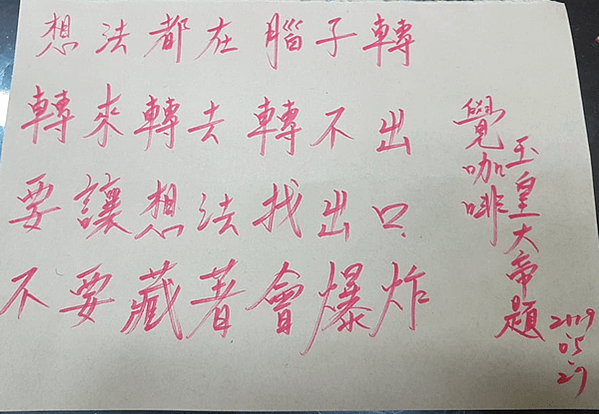 想法都在腦子轉
轉來轉去轉不出
要讓想法找出口
不要藏著會爆炸
覺咖啡
玉皇大帝題
2019
05
29